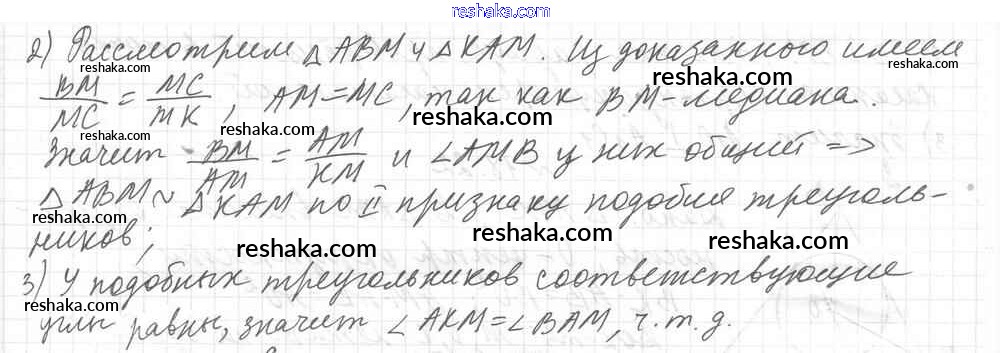 reshaka.com
2) Рассмотрим △ABM и △KAM. Из доказанного имеем
reshaka.com
reshaka.com
BM/MC = MC/MK, AM=MC, так как BM-медиана.
reshaka.com
reshaka.com
reshaka.com
Значит BM/AM = AM/KM и ∠AMB у них общий =>
reshaka.com
reshaka.com
reshaka.com
△ABM ~ △KAM по II признаку подобия треуголь-
reshaka.com
reshaka.com
reshaka.com
ников;
reshaka.com
reshaka.com
3) У подобных треугольников соответствующие
reshaka.com
reshaka.com
reshaka.com
углы равны, значит ∠AKM=∠BAM, ч.т.д.